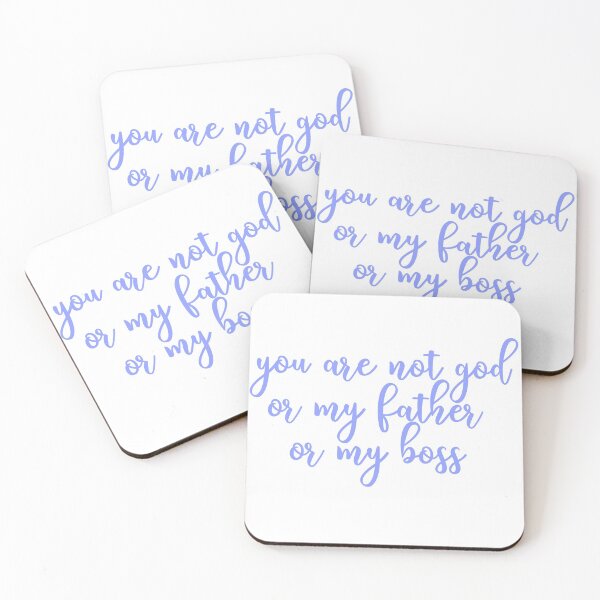 you are not god
or my father
boss
you are not god
or my father
or my boss
you are not god
or my father
or my
you are not god
or my father
or my boss